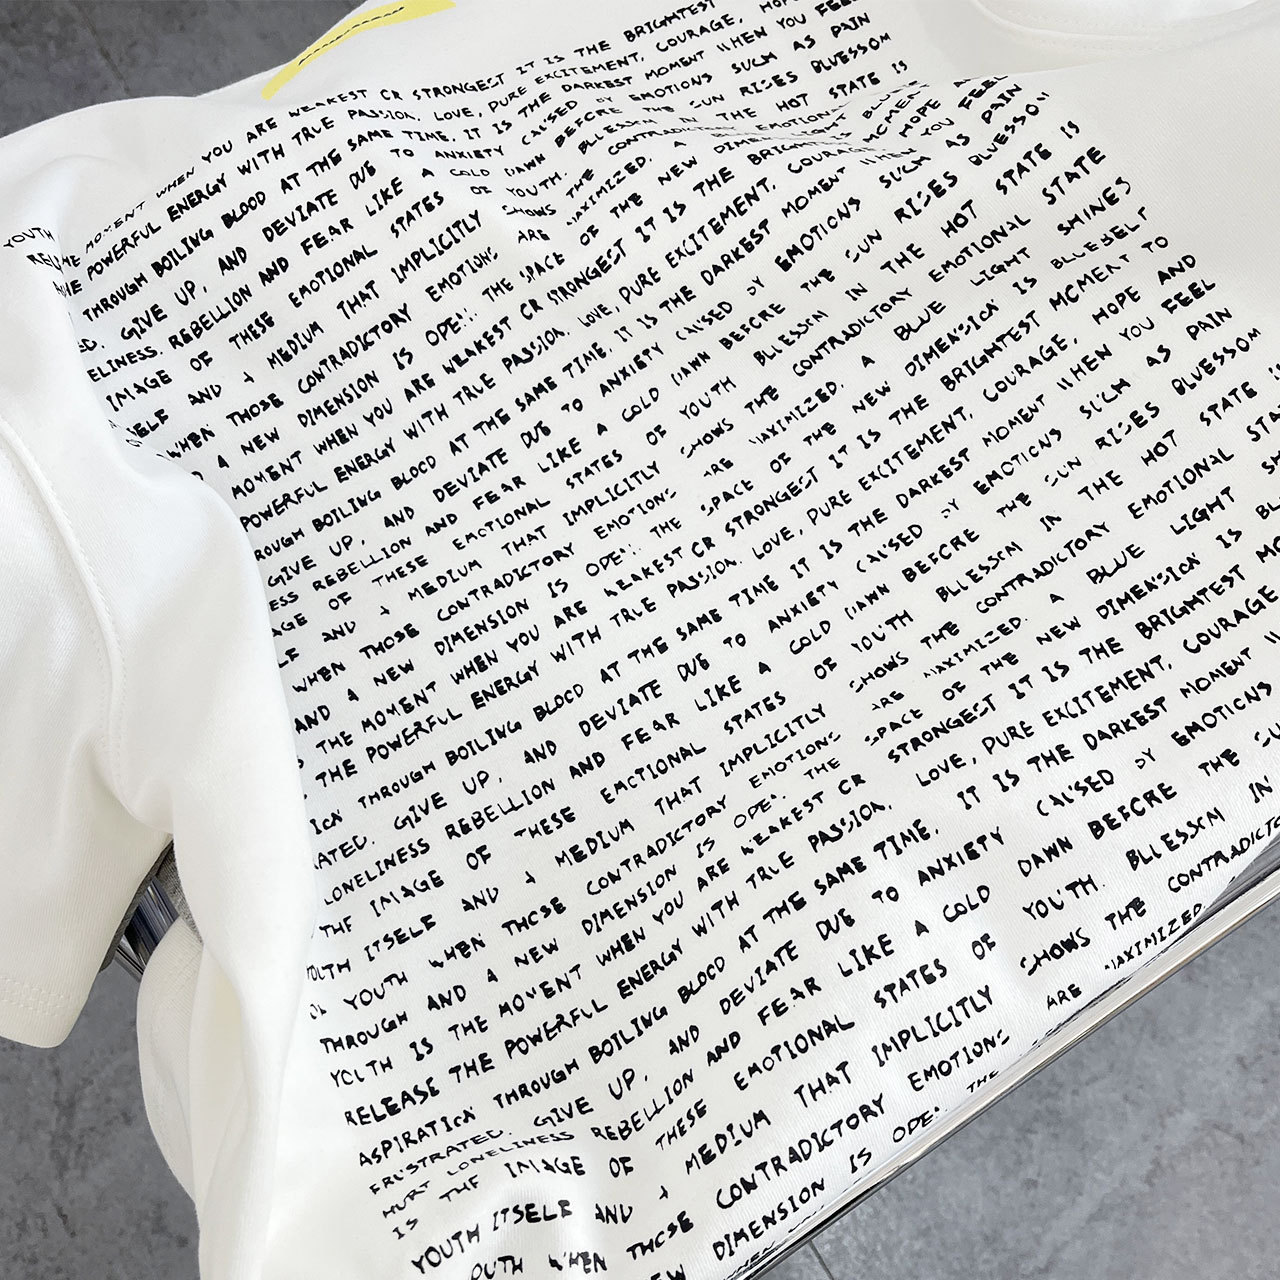 YOUTH MOMENT WHEN YOU ARE WEAKEST CR STRONGEST IT IS THE BRIGHTEST
THE POWERFUL ENERGY WITH TRUE PASSION, LOVE, PURE EXCITEMENT, COURAGE,
THROUGH BOILING BLOOD AT THE SAME TIME, IT IS THE DARKEST MOMENT WHEN YOU FEEL
GIVE UP, AND DEVIATE DUE TO ANXIETY CAUSED BY EMOTIONS SUCH AS PAIN
REBELLION AND FEAR LIKE A COLD DAWN BEFORE THE SUN RISES BLUESSOM
IMAGE OF THESE EMOTIONAL STATES OF YOUTH. BLLESSCM IN THE HOT STATE IS
AND A MEDIUM THAT IMPLICITLY SHOWS THE CONTRADICTORY EMOTIONAL
WHEN THOSE CONTRADICTORY EMOTIONS ARE MAXIMIZED. A LIGHT
A NEW DIMENSION IS OPEN. THE SPACE OF THE NEW IS
MOMENT WHEN YOU ARE WEAKEST CR STRONGEST IT IS THE BRIGHTEST MOMENT FEEL
POWERFUL ENERGY WITH TRUE PASSION, LOVE, PURE EXCITEMENT, COURAGE, HOPE
BOILING BLOOD AT THE SAME TIME, IT IS THE DARKEST MOMENT WHEN YOU
GIVE UP, AND DEVIATE DUE TO ANXIETY CAUSED BY EMOTIONS SUCH AS PAIN
REBELLION AND FEAR LIKE A COLD DAWN BEFCRE THE SUN RISES BLUESSOM
OF THESE EMCTIONAL STATES OF YOUTH BLLESSCM IN THE HOT STATE IS
AND A MEDIUM THAT IMPLICITLY SHOWS THE CONTRADICTORY EMOTIONAL STATE
WHEN THOSE CONTRADICTORY EMOTIONS ARE MAXIMIZED. A BLUE LIGHT SHINES
AND A NEW DIMENSION IS OPEN. THE SPACE OF THE NEW DIMENSION IS
THE MOMENT WHEN YOU ARE WEAKEST CR STRONGEST IT IS THE BRIGHTEST MCMENT TO
THE POWERFUL ENERGY WITH TRUE PASSION, LOVE, PURE EXCITEMENT, COURAGE, HOPE AND
THROUGH BOILING BLOCD AT THE SAME TIME IT IS THE DARKEST MOMENT WHEN YOU FEEL
GIVE UP, AND DEVIATE DUE TO ANXIETY CAUSED BY EMOTICNS SUCH AS PAIN
LONELINESS REBELLION AND FEAR LIKE A COLD DAWN BEFCRE THE SUN RISES BLUESSOM
THE IMAGE OF THESE EMCTIONAL STATES OF YOUTH BLLESSCM IN THE HOT STATE
YOUTH ITSELF AND A MEDIUM THAT IMPLICITLY SHOWS THE CONTRADICTORY EMOTIONAL
YOUTH WHEN THCSE CONTRADICTORY EMOTIONS ARE MAXIMIZED. A BLUE LIGHT
THROUGH AND A NEW DIMENSION IS OPEN. THE SPACE OF THE NEW DIMENSION IS
YOUTH IS THE MOMENT WHEN YOU ARE WEAKEST CR STRONGEST IT IS THE BRIGHTEST
RELEASE THE POWERFUL ENERGY WITH TRUE PASSION, LOVE, PURE EXCITEMENT, COURAGE
ASPIRATION THROUGH BOILING BLOCD AT THE SAME TIME, IT IS THE DARKEST MOMENT
FRUSTRATED. GIVE UP, AND DEVIATE DUE TO ANXIETY CAUSED BY EMOTICNS
HURT LONELINESS REBELLION AND FEAR LIKE A COLD DAWN BEFCRE THE
IS THE IMAGE OF THESE EMOTIONAL STATES OF YOUTH. BLLESSCM IN
YOUTH ITSELF AND A MEDIUM THAT IMPLICITLY SHOWS THE
WHEN THCSE CONTRADICTORY EMOTIONS ARE MAXIMIZED.
DIMENSION IS OPEN. THE